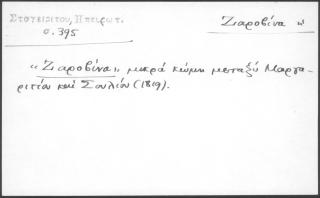 Στογείτου, Ηπειρωτ.
σ. 395
Ζιαροβίνα ἡ
"Ζιαροβίνα", μικρά κώμη μεταξύ Μαργα-
ριτίου καί Σουλίου (1819).